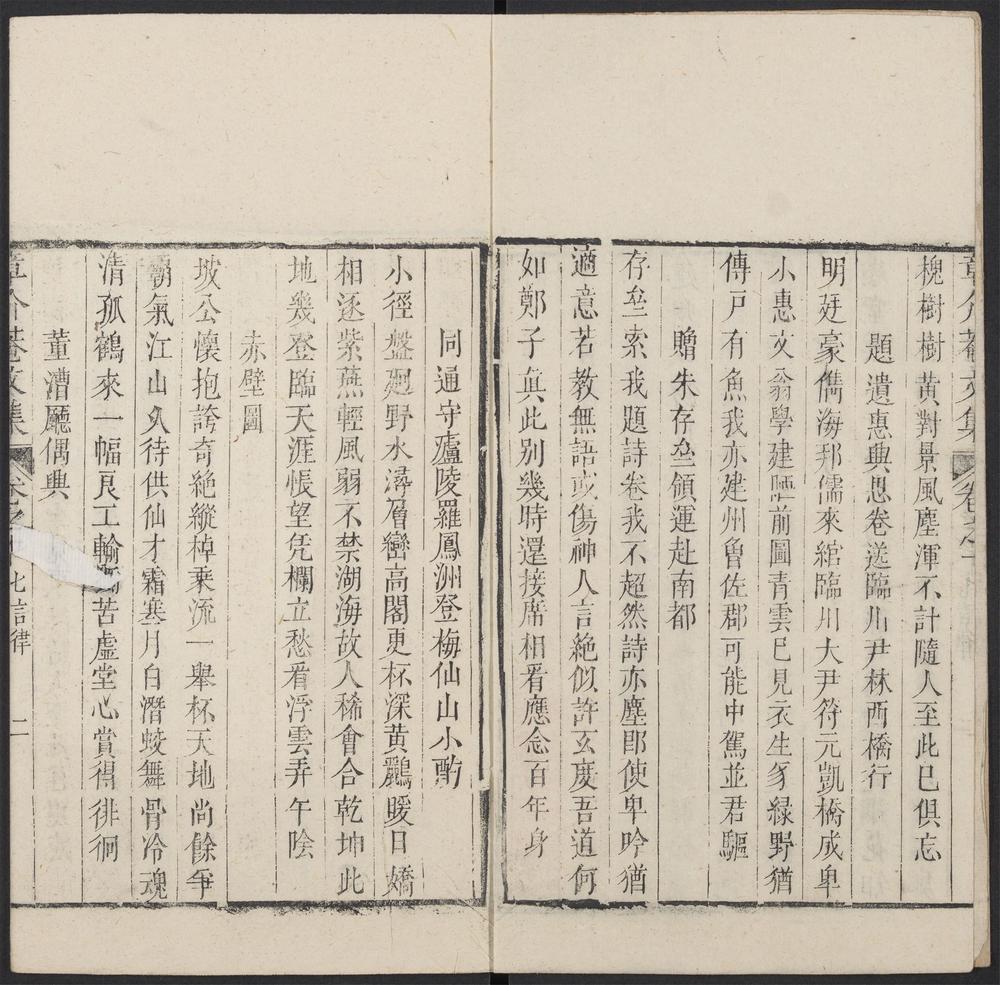 章介菴文集 卷之十
槐樹樹黃對景風塵渾不計隨人至此已俱忘
題遺惠興思卷送臨川尹林西橋行
明廷豪儁海邦儒來綰臨川大尹符元凱橋成卑
小惠文翁學建陋前圖青雲已見衣生豸緑野猶
傳戶有魚我亦建州魯佐郡可能中駕並君驅
贈朱存壘領運赴南都
存壘索我題詩卷我不超然詩亦塵即使卑吟猶
適意若教無語或傷神人言絶似許玄度吾道何
如鄭子真此别幾時還接席相看應念百年身
同通守廬陵羅鳳洲登梅仙山小酌
小徑盤廻野水潯層巒高閣更杯深黃鸝暖日嬌
相逐紫燕輕風弱不禁湖海故人稀會合乾坤此
地幾登臨天涯悵望凭欄立愁看浮雲弄午陰
赤壁圖
坡公懷抱誇奇絶縱棹乘流一舉杯天地尚餘爭
霸氣江山久待供仙才霜塞月白潛蛟舞骨冷魂
清孤鶴來一幅良工輸苦虛堂心賞得徘徊
董漕廳偶興
章介菴文集 七言律 二